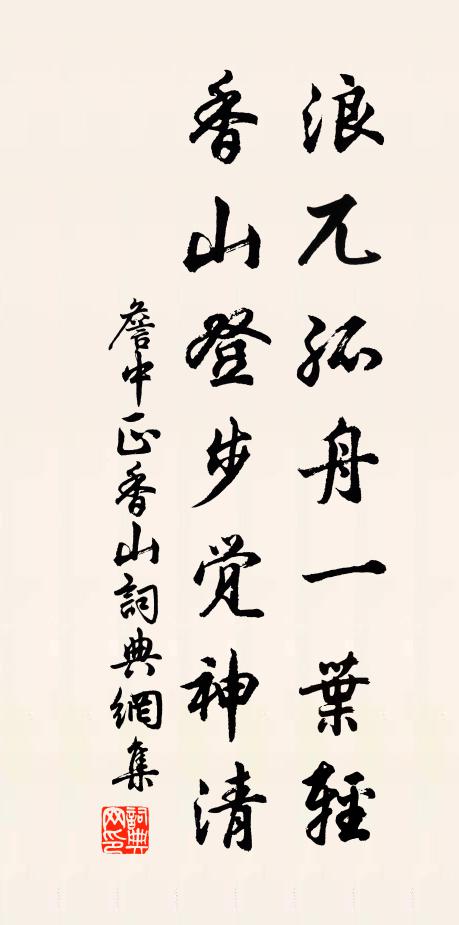 浪兀孤舟一葉輕
香山登步覺神清
詹中正香山詞典網集
詞典網印